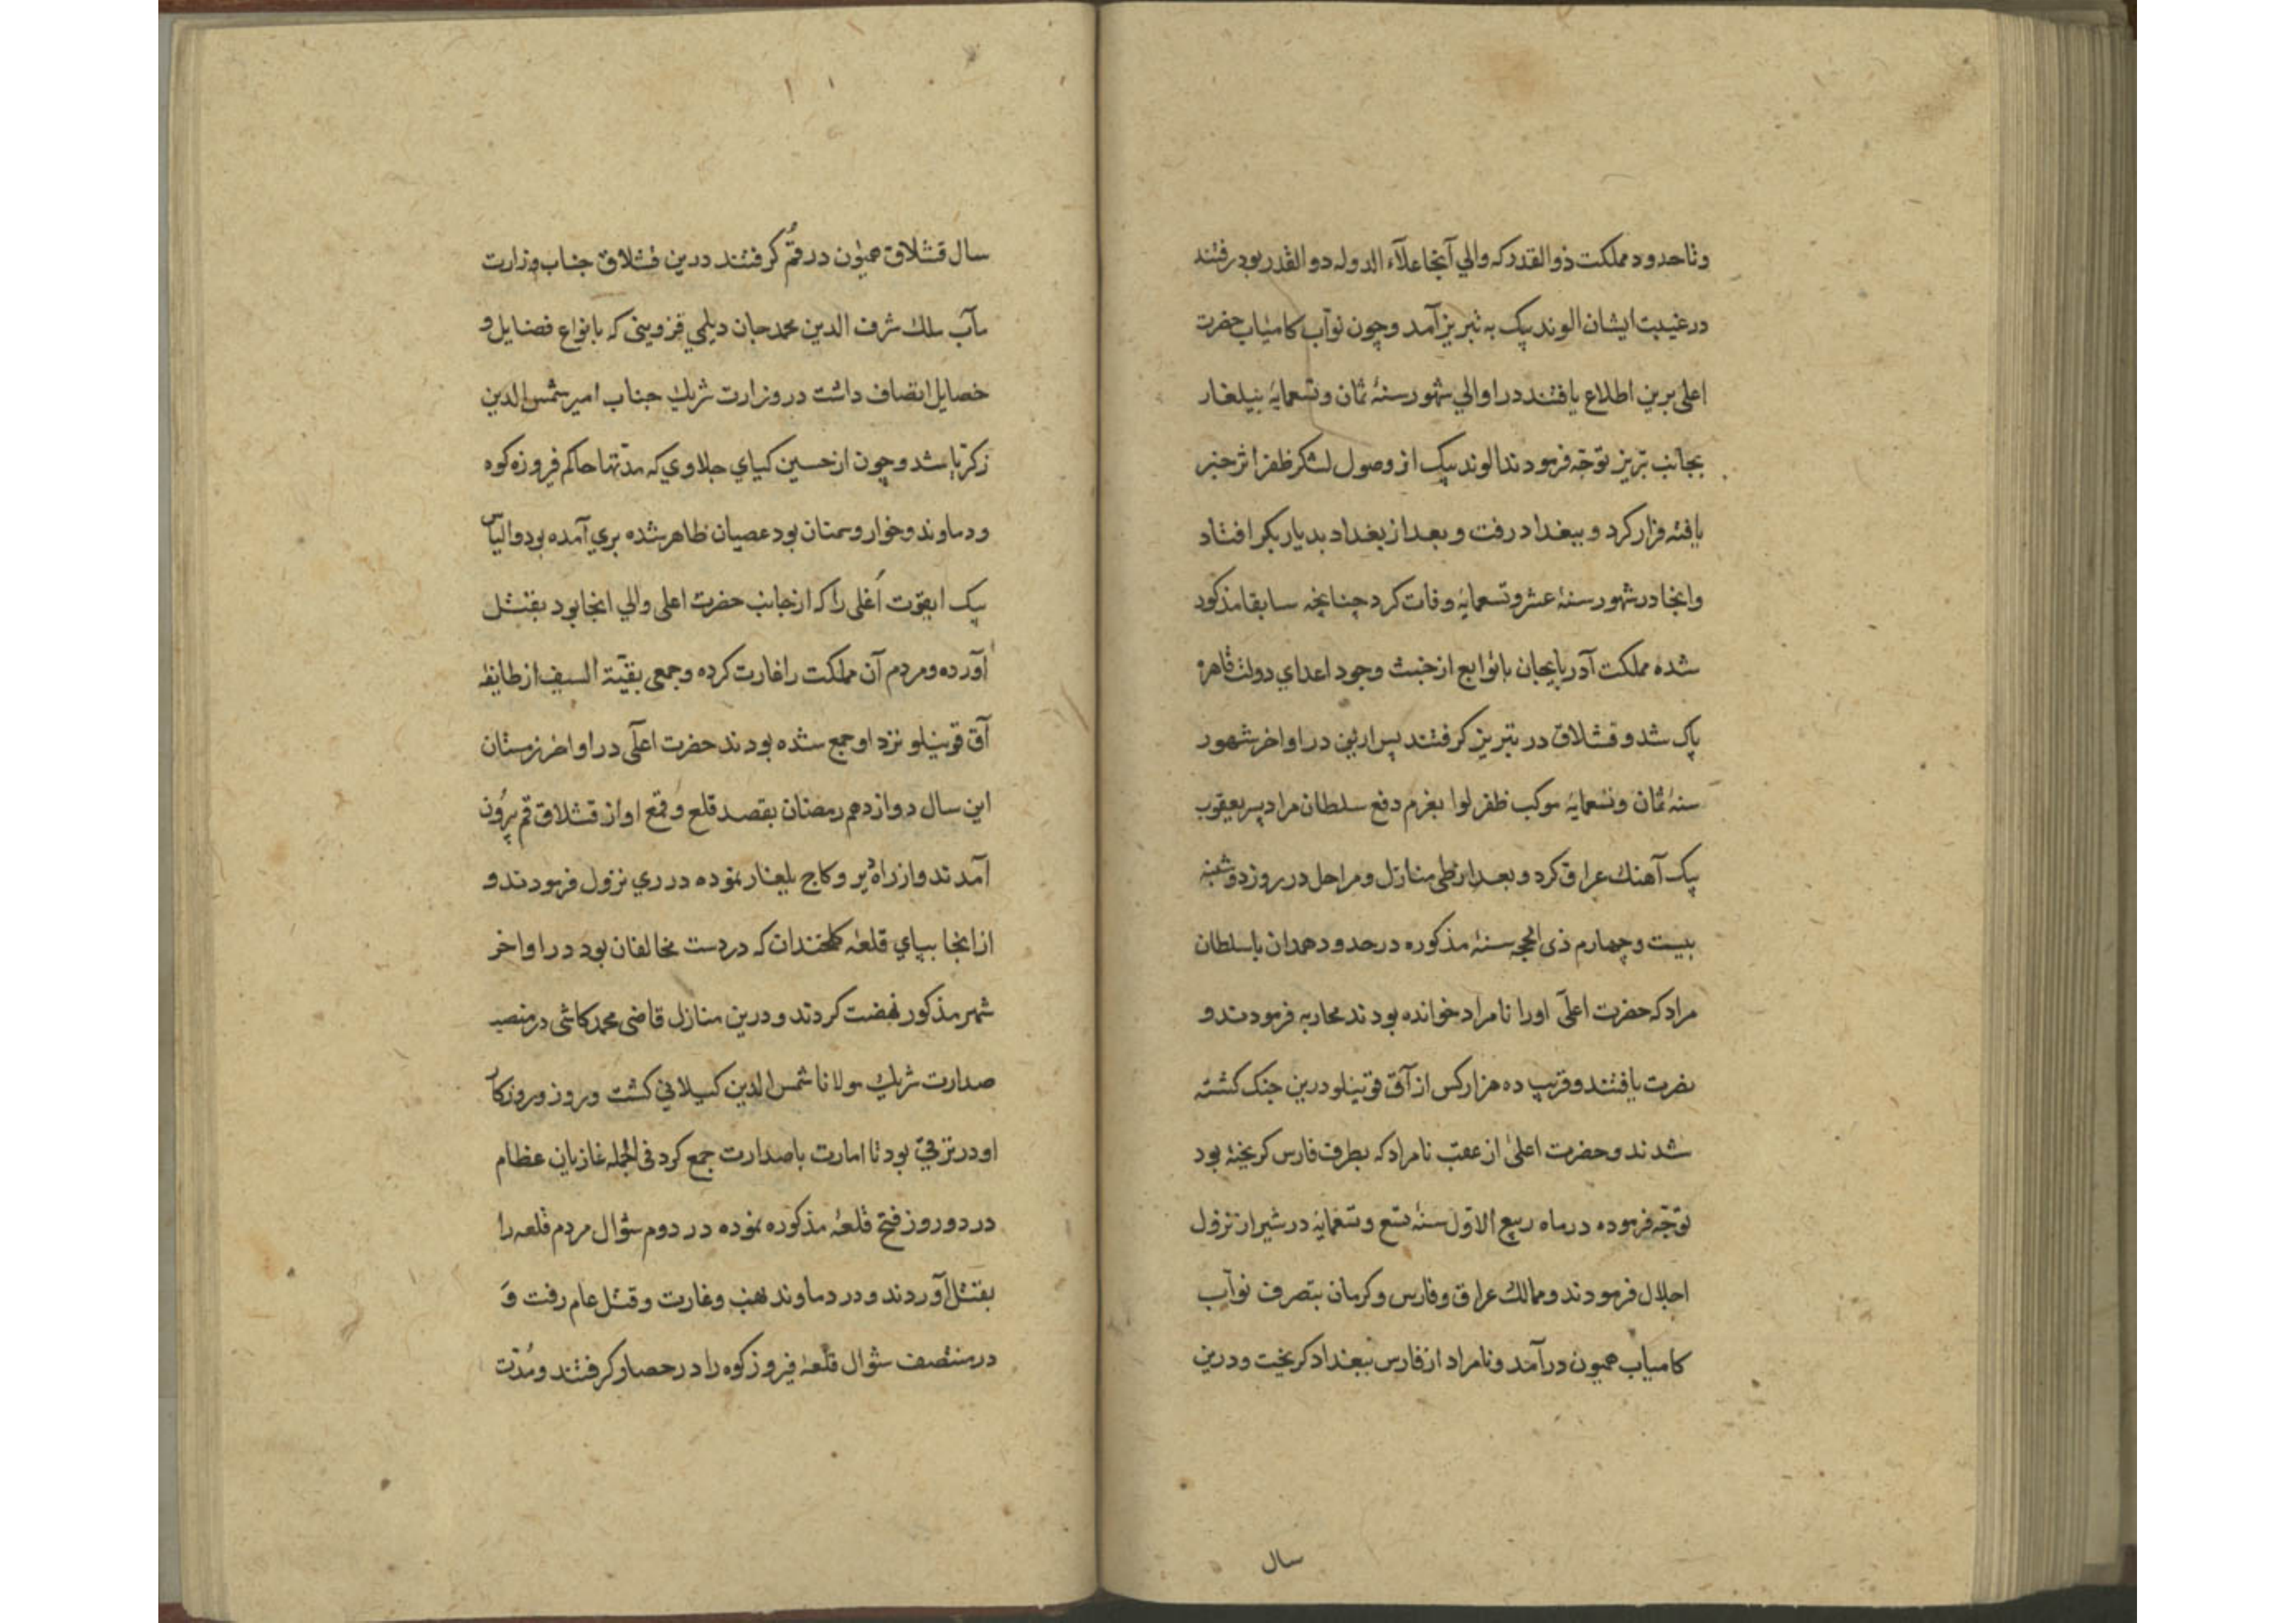 وتا حدود مملکت ذوالقدر که والي آنجا علاء الدوله دوالقدر بود رفتند
در غیبت ایشان الوند بیک به تبریز آمد و چون نواب کامیاب حضرت
اعلی برین اطلاع یافتند در اوالي شهور سنهٔ ثمان و تسعمایهٔ بیلغار
بجانب تبریز توجّه فرمودند الوند بیک از وصول لشکر ظفر اثر خبر
یافته فرار کرد و ببغداد رفت و بعد از بغداد بدیار بکر افتاد
وانجا در شهور سنهٔ عشر و تسعمایهٔ وفات کرد چنانچه سابقا مذکور
شده مملکت آذربایجان با توابع از خبث وجود اعداي دولت قاهره
پاک شد و قشلاق در تبریز کرفتند پس ازین در اواخر شهور
سنهٔ ثمان و تسعمایهٔ موکب ظفر لوا بعزم دفع سلطان مراد پسر یعقوب
بیک آهنک عراق کرد و بعد از طی منازل و مراحل در روز دوشنبه
بیست و چهارم ذی الحجه سنهٔ مذکوره در حدود همدان با سلطان
مراد که حضرت اعلی اورا نامراد خوانده بودند محاربه فرمودند و
نصرت یافتند و قریب ده هزار کس از آق قوینلو درین جنک کشته
شدند و حضرت اعلی از عقب نامراد که بطرف فارس کریخته بود
توجّه فرموده در ماه ربیع الاوّل سنهٔ تسع و تسعمایهٔ در شیراز نزول
اجلال فرمودند و ممالک عراق و فارس و کرمان بتصرف نواب
کامیاب همیون درآمد و نامراد از فارس ببغداد کریخت و درین
سال
سال قشلاق همیون در قُم کرفتند درین قشلاق جناب وزارت
مآب ملک شرف الدین محمد جان دیلمي قزوینی که بانواع فضایل و
خصایل اتصاف داشت در وزارت شریک جناب امیر شمس الدین
زکریا شد و چون از حسین کیاي جلاوي که مدتها حاکم فیروزه کوه
و دماوند و خوار و سمنان بود عصیان ظاهر شده بري آمده بود و الیاس
بیک ایقوت اُغلی را که از جانب حضرت اعلی والي انجا بود بقتل
آورده و مردم آن مملکت را غارت کرده و جمعی بقیّة السیف از طایفهٔ
آق قوینلو نزد او جمع شده بودند حضرت اعلی در اواخر زمستان
این سال دوازدهم رمضان بقصد قلع و قمع او از قشلاق قم بیرون
آمدند و از راه دیر و کاج بلیغار نموده در ري نزول فرمودند و
از انجا بپاي قلعهٔ کلخندان که در دست مخالفان بود در اواخر
شهر مذکور نهضت کردند و درین منازل قاضی محمد کاشی در منصب
صدارت شریک مولانا شمس الدین کیلاني کشت و روز و روزکار
او در ترقي بود تا امارت با صدارت جمع کرد فی الجمله غازیان عظام
در دو روز فتح قلعهٔ مذکوره نموده در دوم شوال مردم قلعه را
بقتل آوردند و در دماوند نهب و غارت و قتل عام رفت وَ
در منتصف شوال قلعهٔ فیروزکوه را در حصار کرفتند و مُدّت